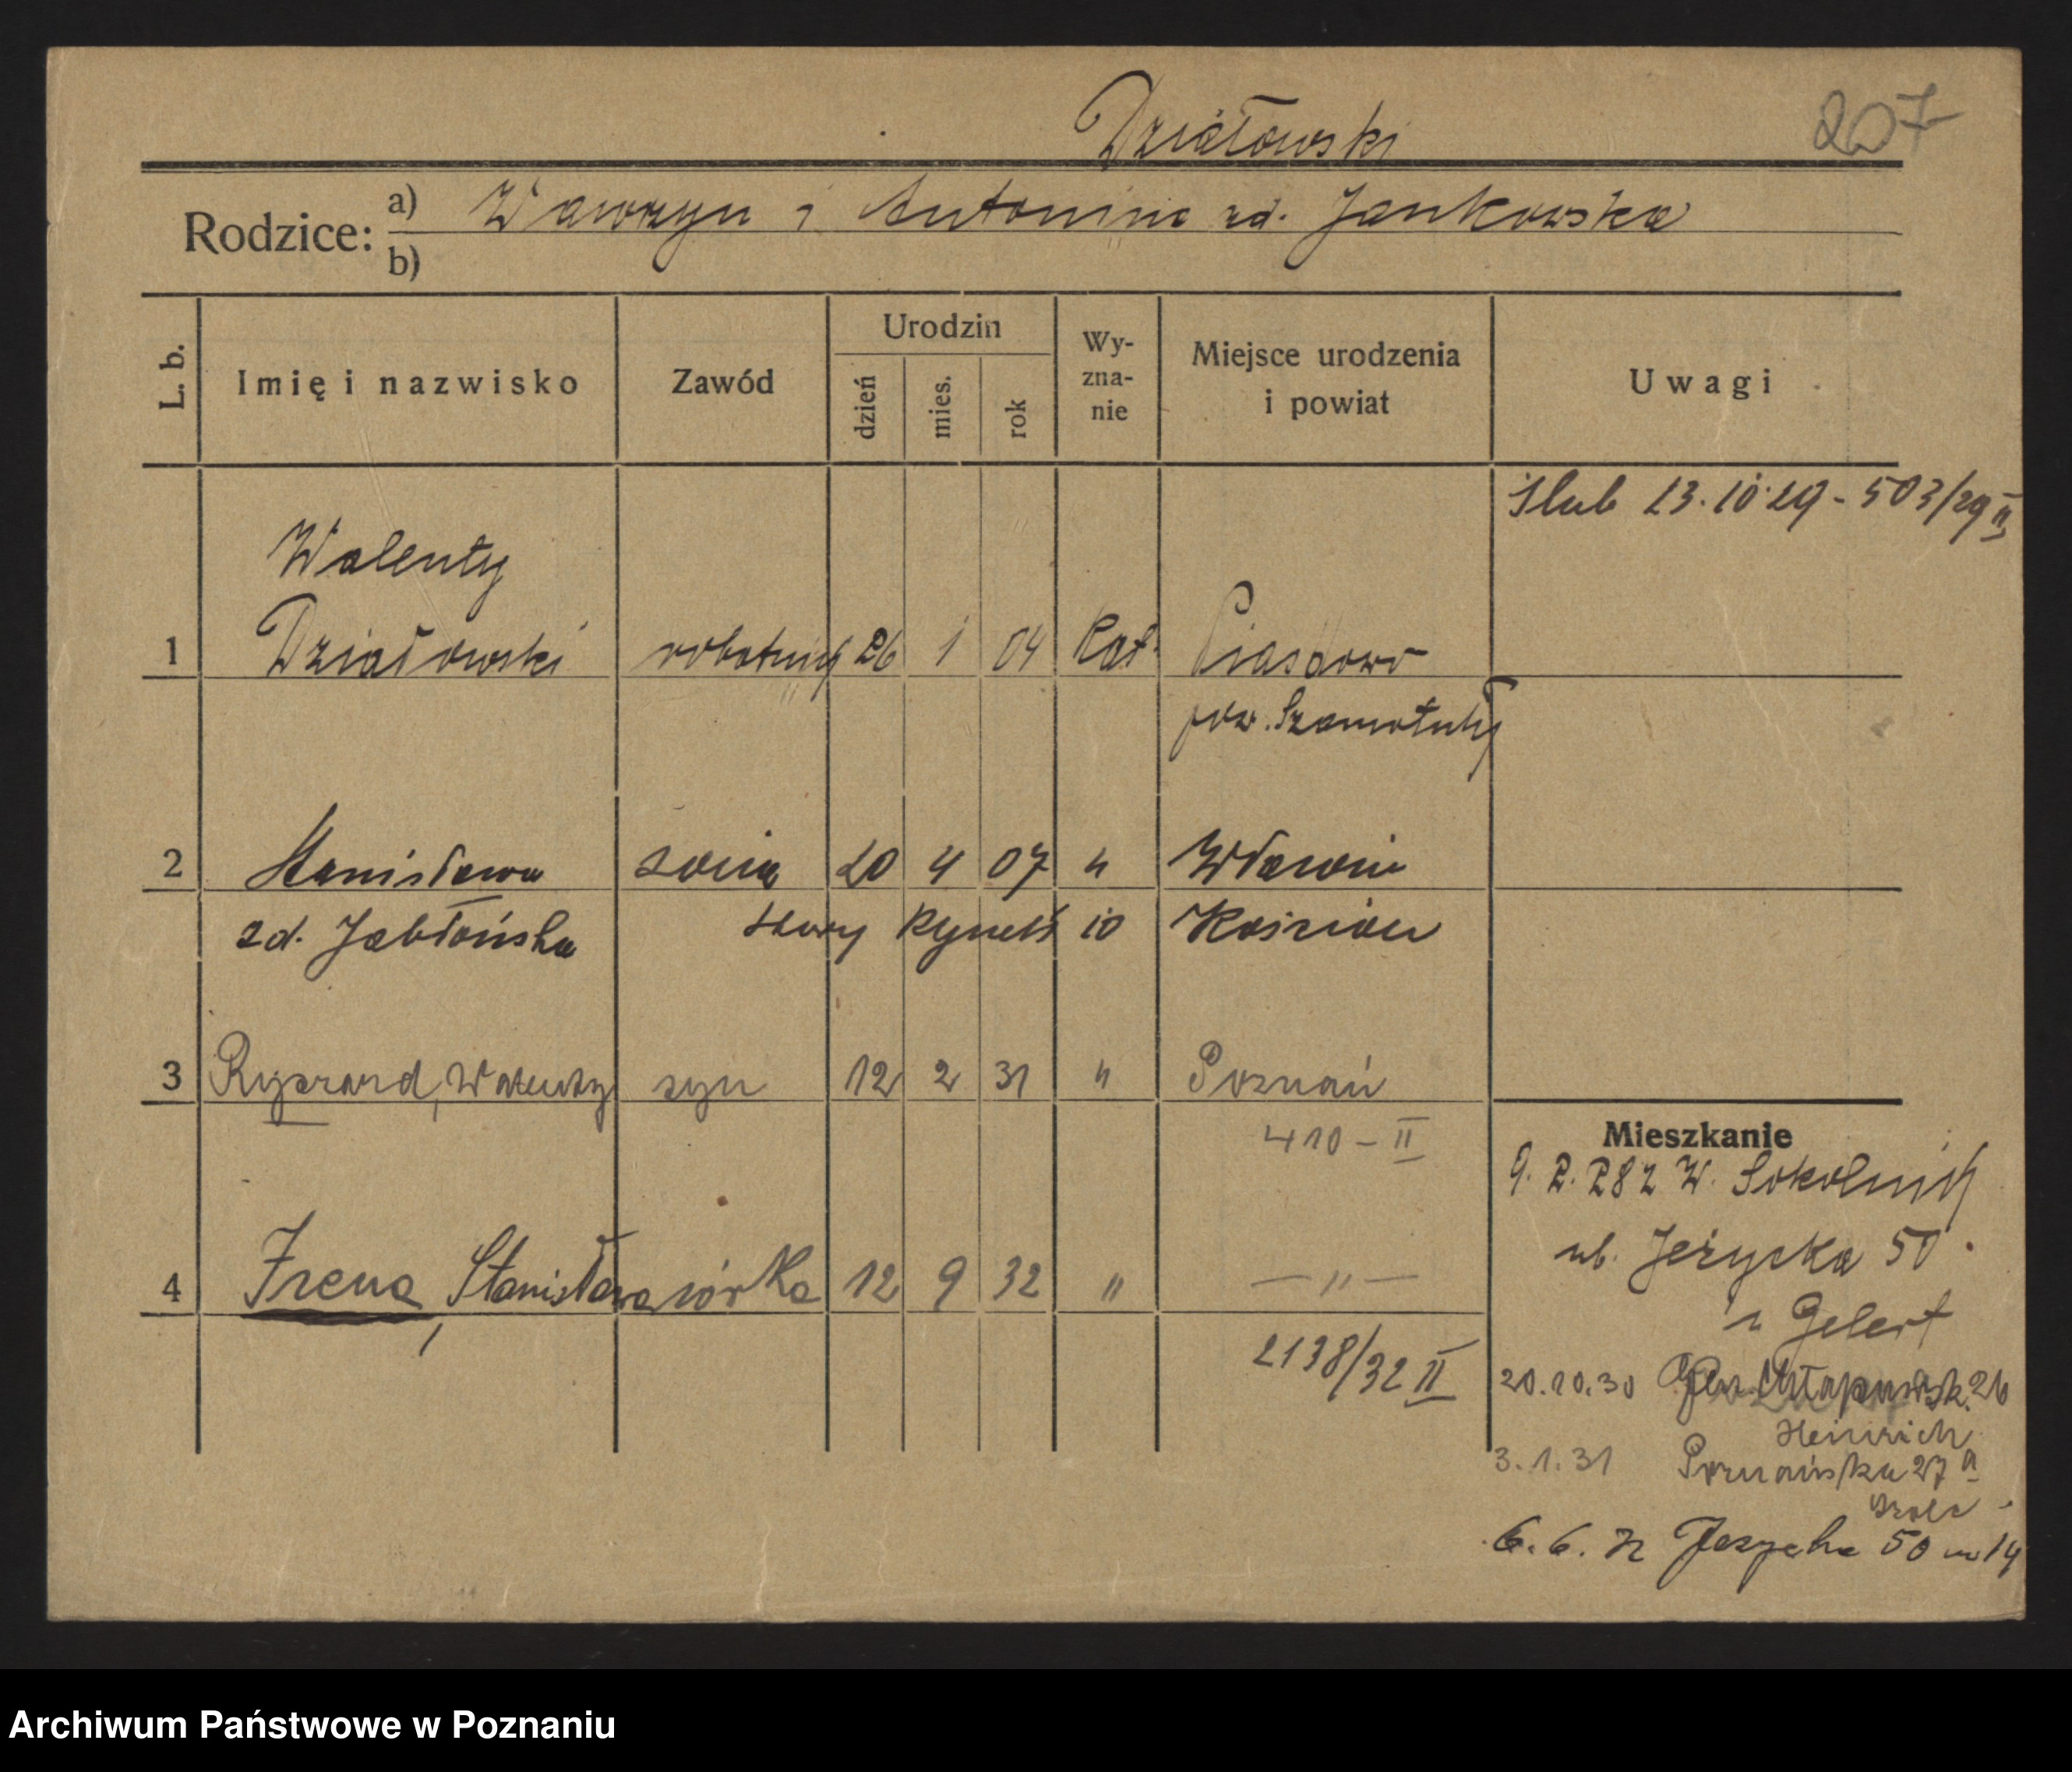 207
Działowski
Rodzice:
a) Wawrzyn i Antonina zd. Jankowska
b)
L. b.
Imię i nazwisko
Zawód
Urodzin
dzień
mies.
rok
Wy-
zna-
nie
Miejsce urodzenia
i powiat
Uwagi
Ślub 13.10.29 - 503/29 II
Walenty
1 Działowski robotnik 26 1 04 Kat. Piaskowo
pow. Szamotuły
2 Stanisława żona 20 4 07 "
zd. Jabłońska Stary Rynek 10 Kościan
3 Ryszard, Walenty syn 12 2 31 " Poznań
410 - II
4 Irena, Stanisława córka 12 9 32 " — " —
2138/32 II
Mieszkanie
W. Sokolnik
ul. Jeżycka 50
u Gelert
20.10.30 26
Heinrich
3.1.31 Poznańska 27a
6.6. Jeżycka 50 m 14
Archiwum Państwowe w Poznaniu